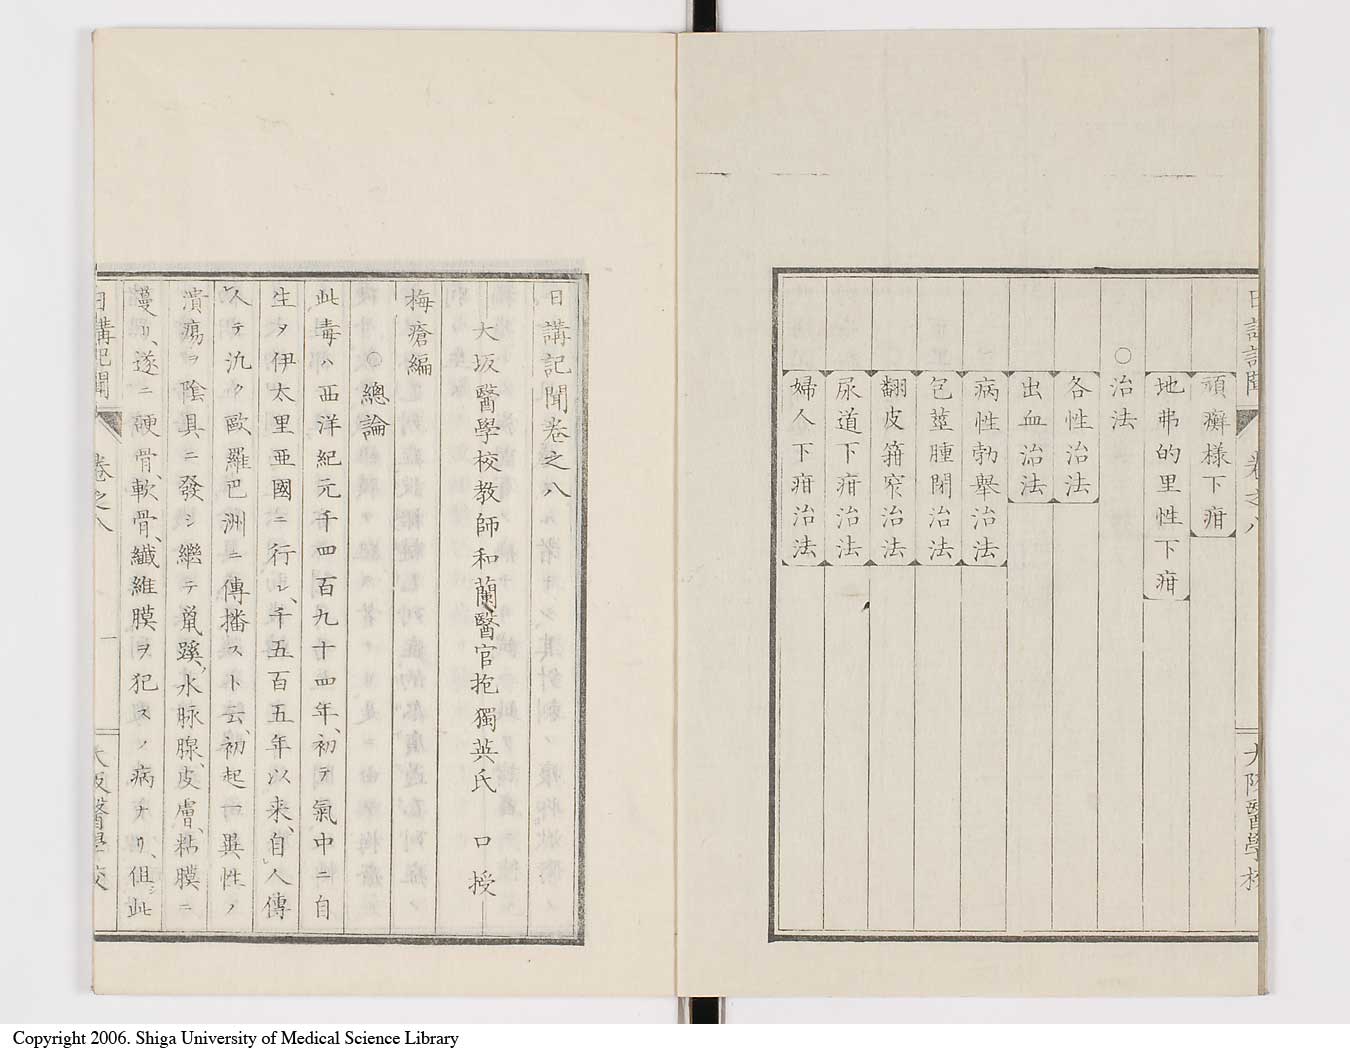 頑癬樣下疳
地弗的里性下疳
○治法
各性治法
出血治法
病性勃舉治法
包莖腫閉治法
翻皮箝窄治法
尿道下疳治法
婦人下疳治法
大阪醫學校
日講記聞卷之八
大坂醫學校教師和蘭醫官抱獨英氏　口授
梅瘡編
○總論
此毒ハ西洋紀元千四百九十四年、初テ氣中ニ自
生ヲ伊太里亜國ニ行レ、千五百五年以来、自人傳
人テ氿ク歐羅巴洲ニ傳播スト云、初起一異性ノ
潰瘍ヲ陰具ニ發シ繼テ鼠蹊、水脉腺、皮膚、粘膜ニ
蔓リ、遂ニ硬骨、軟骨、纖維膜ヲ犯スノ病ナリ、但シ此
日講記聞　卷之八　一　大坂醫學校
Copyright 2006. Shiga University of Medical Science Library